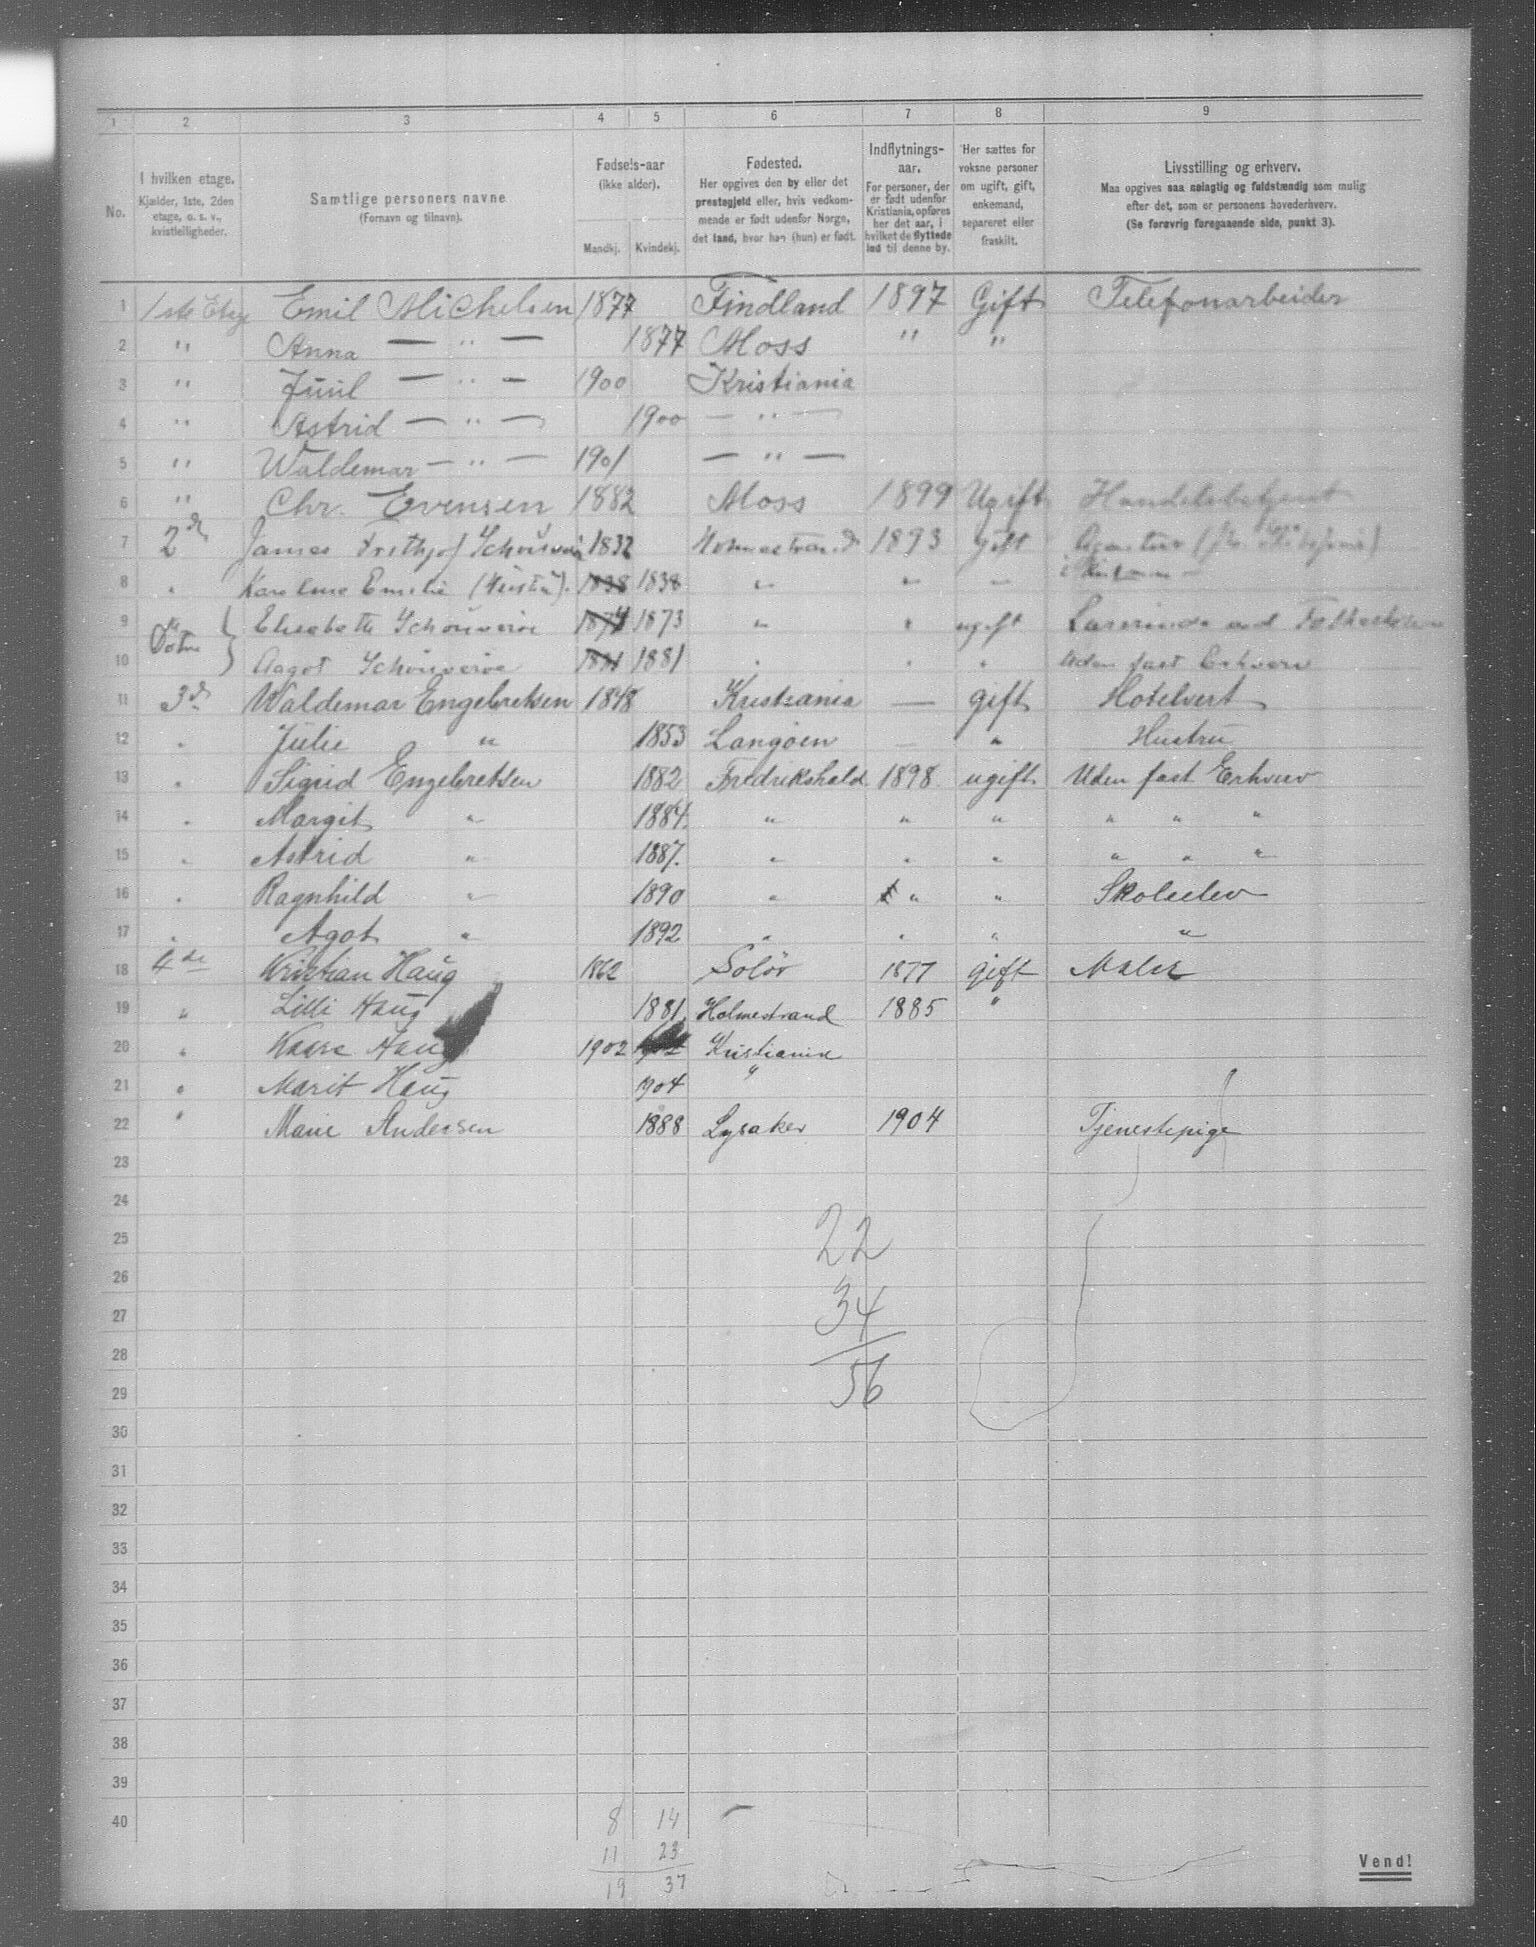 1 2 3 4 5 6 7 8 9
No. I hvilken etage. Kjælder, 1ste, 2den etage, o. s. v., kvistleiligheder. Samtlige personers navne (Fornavn og tilnavn). Fødsels-aar (ikke alder). Mandkj. Kvindekj. Fødested. Her opgives den by eller det prestegjeld eller, hvis vedkommende er født udenfor Norge, det land, hvor han (hun) er født. Indflytnings-aar. For personer, der er født udenfor Kristiania, opføres her det aar, i hvilket de flyttede ind til denne by. Her sættes for voksne personer om ugift, gift, enkemand, separeret eller fraskilt. Livsstilling og erhverv. Maa opgives saa nøiagtig og fuldstændig som mulig efter det, som er personens hovederhverv. (Se forøvrig foregaaende side, punkt 3).
1 1ste Etage Emil Michelsen 1877 Findland 1897 Gift Telefonarbeider
2 " Anna — " — 1877 Moss " "
3 " Juul — " — 1900 Kristiania
4 " Astrid — " — 1900 — " —
5 " Waldemar — " — 1901 — " —
6 " Chr. Evensen 1882 Moss 1899 Ugift Handelsbetjent
7 2d James Frithjof 1832 Holmestrand 1893 gift
8 " Karoline Emilie (Hustru). 1838 1838 " " "
9 Døtre } Elisabeth Schouverøe 1874 1873 " " ugift Lærerinde ved
10 Aagot Schouverøe 1881 1881 " " " Uden fast Erhverv
11 3d Waldemar Engebretsen 1848 Kristiania — gift Hotelvert
12 " Julie " 1853 Langøen — " Hustru
13 " Sigrid Engebretsen 1882 Fredrikshald 1898 ugift Uden fast Erhverv
14 " Margit " 1884. " " " " " "
15 " Astrid " 1887. " " " " " "
16 " Ragnhild " 1890 " " " Skoleelev
17 " Agot " 1892 " " " "
18 4de Kristian Haug 1862 Solør 1877 gift Maler
19 " Lilli Haug 1881 Holmestrand 1885 "
20 " Kaare Haug 1902 1902 Kristiania
21 " Marit Haug 1904 "
22 " Marie Andersen 1888 Lysaker 1904 Tjenestepige
23
24
25 22
26
27 34
28
29 56
30
31
32
33
34
35
36
37
38
39
40 8 14
11 23
19 37
Vend!